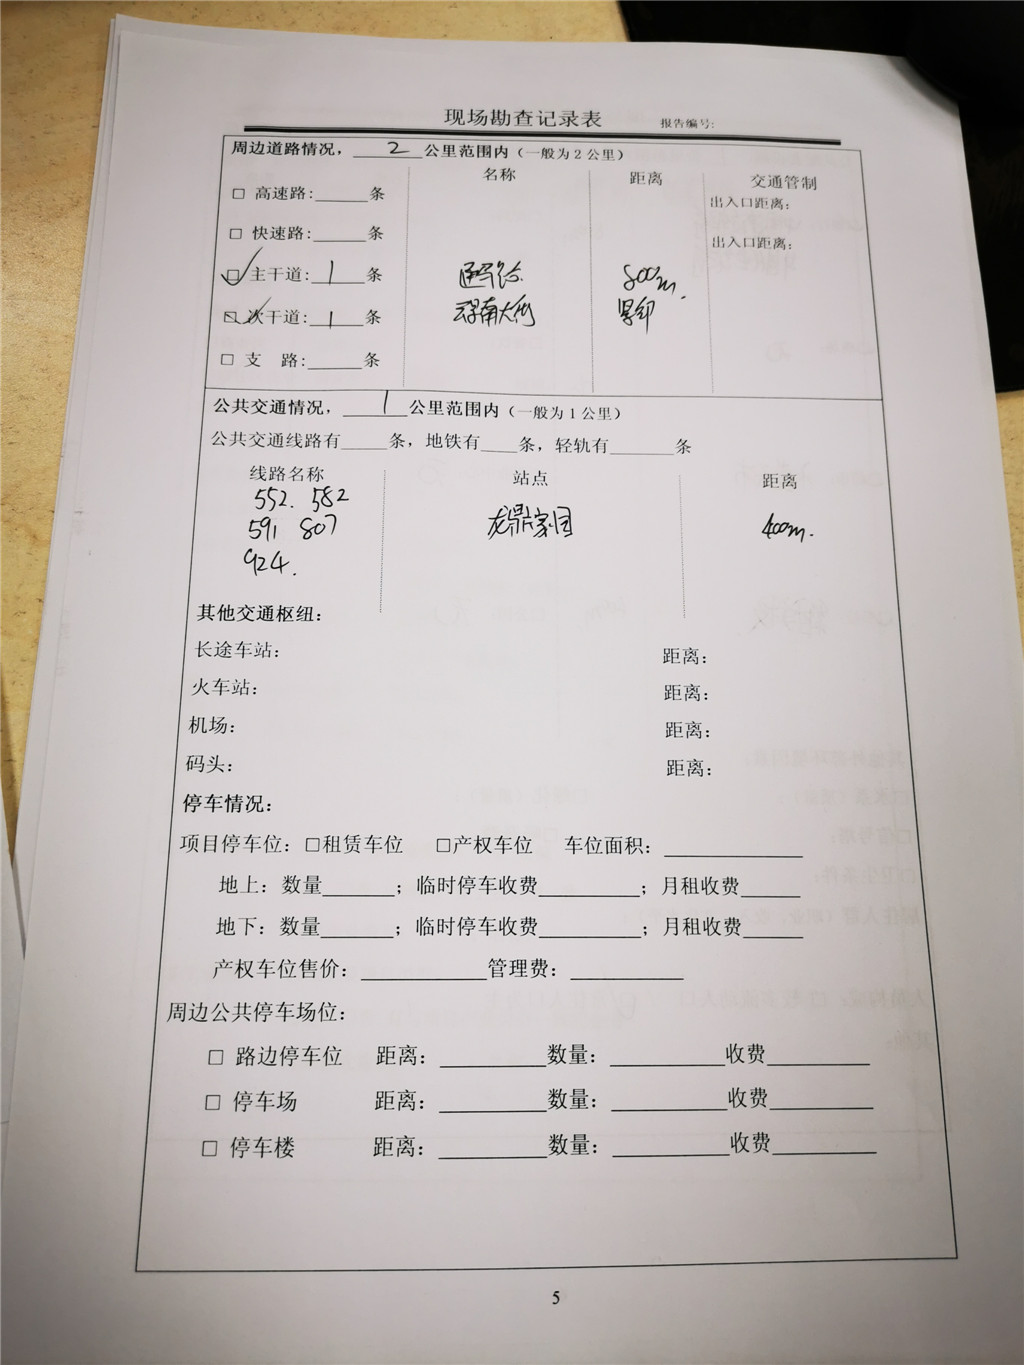 现场勘查记录表 报告编号:
周边道路情况，2公里范围内（一般为2公里）
名称 距离 交通管制
□ 高速路:______条 出入口距离:
□ 快速路:______条 出入口距离:
☑ 主干道: 1 条 800m.
☑ 次干道: 1 条 南大街
□ 支 路:______条
公共交通情况，1公里范围内（一般为1公里）
公共交通线路有_____条，地铁有____条，轻轨有_______条
线路名称 站点 距离
552. 582
591 807 龙鼎家园 400m.
924.
其他交通枢纽:
长途车站: 距离:
火车站: 距离:
机场: 距离:
码头: 距离:
停车情况:
项目停车位: □租赁车位 □产权车位 车位面积:______________
地上: 数量_______; 临时停车收费__________; 月租收费______
地下: 数量_______; 临时停车收费__________; 月租收费______
产权车位售价:____________管理费:___________
周边公共停车场位:
□ 路边停车位 距离:__________数量:___________收费__________
□ 停车场 距离:__________数量:___________收费__________
□ 停车楼 距离:__________数量:___________收费__________
5